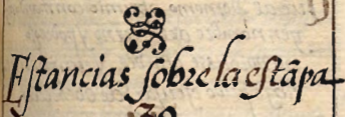 Eſtancias ſobre la eſtãpa